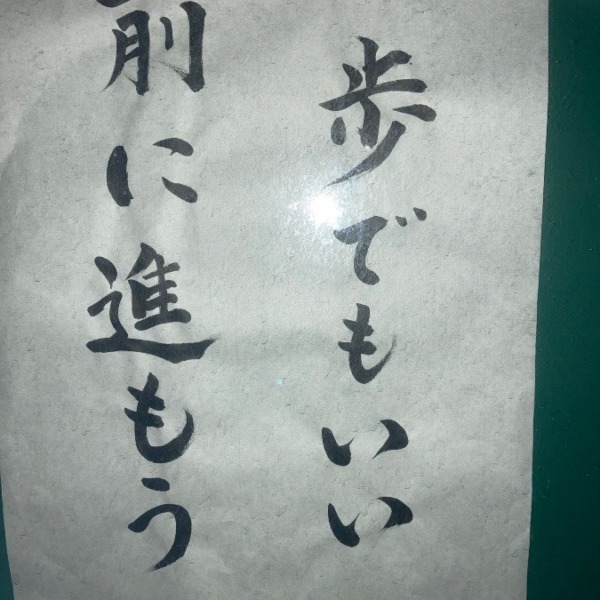 歩でもいい
前に進もう